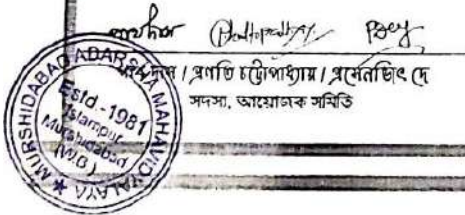 / প্রণতি চট্টোপাধ্যায় / প্রসেনজিৎ দে
সদস্য, আয়োজক সমিতি
MURSHIDABAD ADARSHA MAHAVIDYALAYA
Estd.-1981
Islampur
Murshidabad
(W.B.)